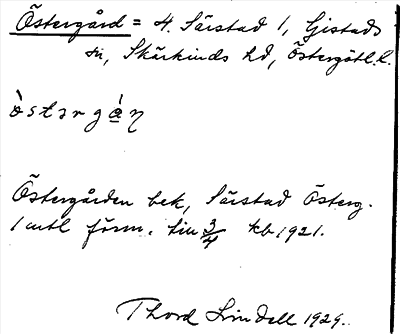 Östergård = 4. Särstad 1, Gistads
sn, Skärkinds hd, Östergötl. l.
òstərgàɳ
Östergården bek, Särstad Österg.
1 mtl förm. till 3/4 kb 1921.
Thord Lindell 1929.